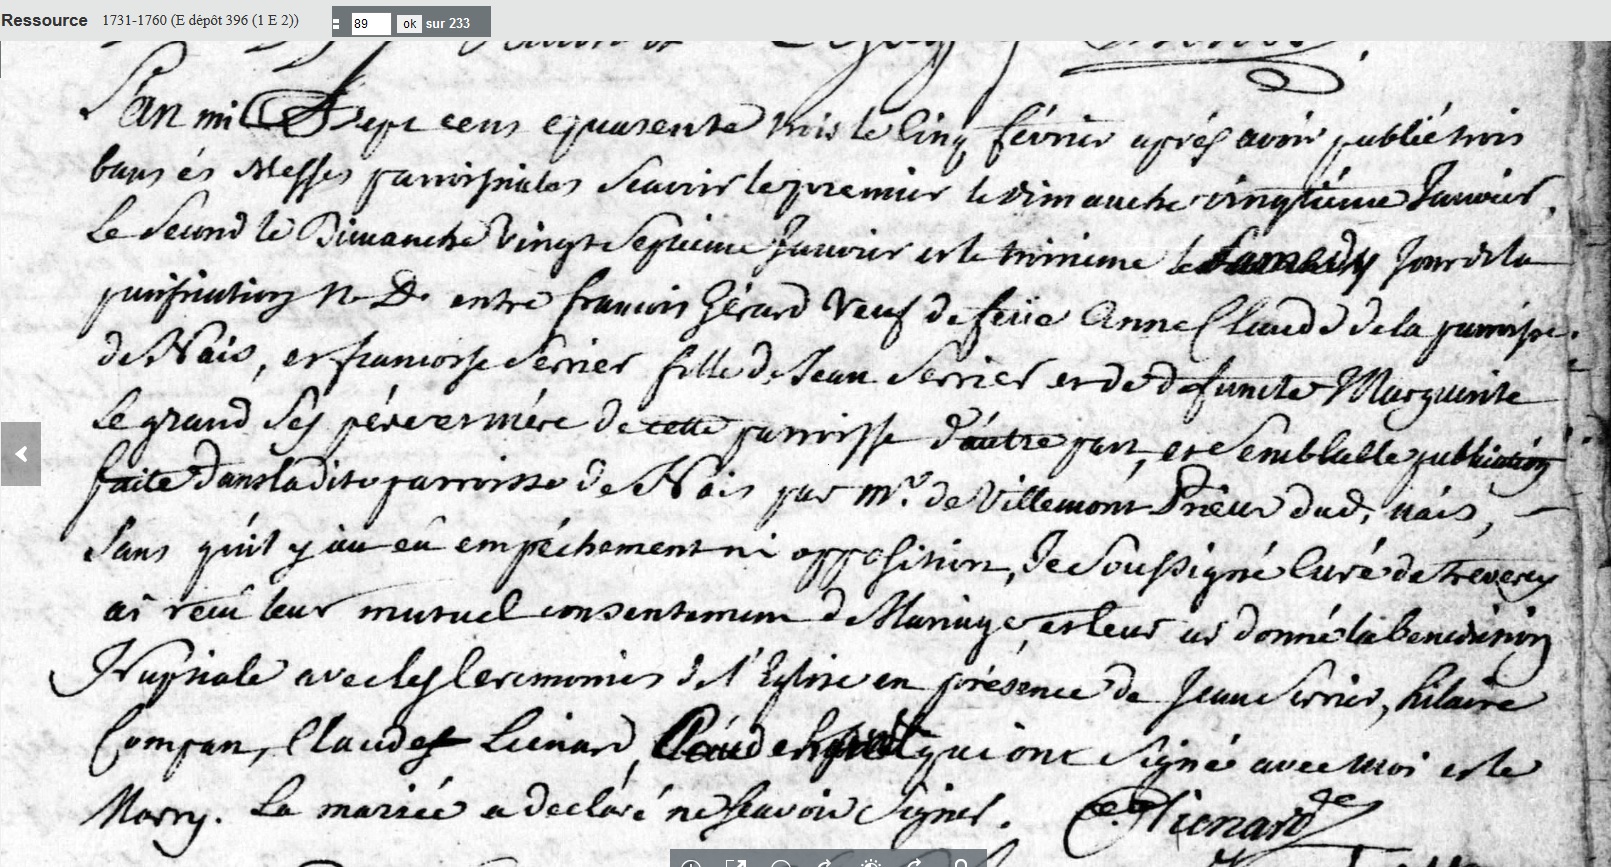 Ressource 1731-1760 (E dépôt 396 (1 E 2)) 89 ok sur 233
L'an mil Sept cens quarente trois le Cinq février aprés avoir publié trois
bans és Messes parroissiales Scavoir le premier le dimanche vingtiéme Janvier,
Le Second le Dimanche Vingt Septieme Janvier et le troisieme le Samedy Jour de la
purification N. D. entre francois Gérard Veuf de feüe Anne Claude de la parroisse
de Nais, et francoise Serrier fille de Jean Serrier et de defuncte Marguerite
le grand Ses pére et mére de cette parroisse d'autre part, et Semblable publication
faite dans ladite parroisse de Nais par mr. de Villemont Prieur dud. nais,
Sans qu'il y ait eû empéchement ni opposition, Je Soussigné Curé de Treveray
ai recû leur mutuel consentement de Mariage, et leur ai donné la benediction
Nuptiale avec les Ceremonies de l'Eglise en présence de Jean Serrier, hilaire
Compan, Claude Lienard, qui ont Signé avec moi et le
Marry. La mariée a declaré ne Scavoir Signer. C. Lienard